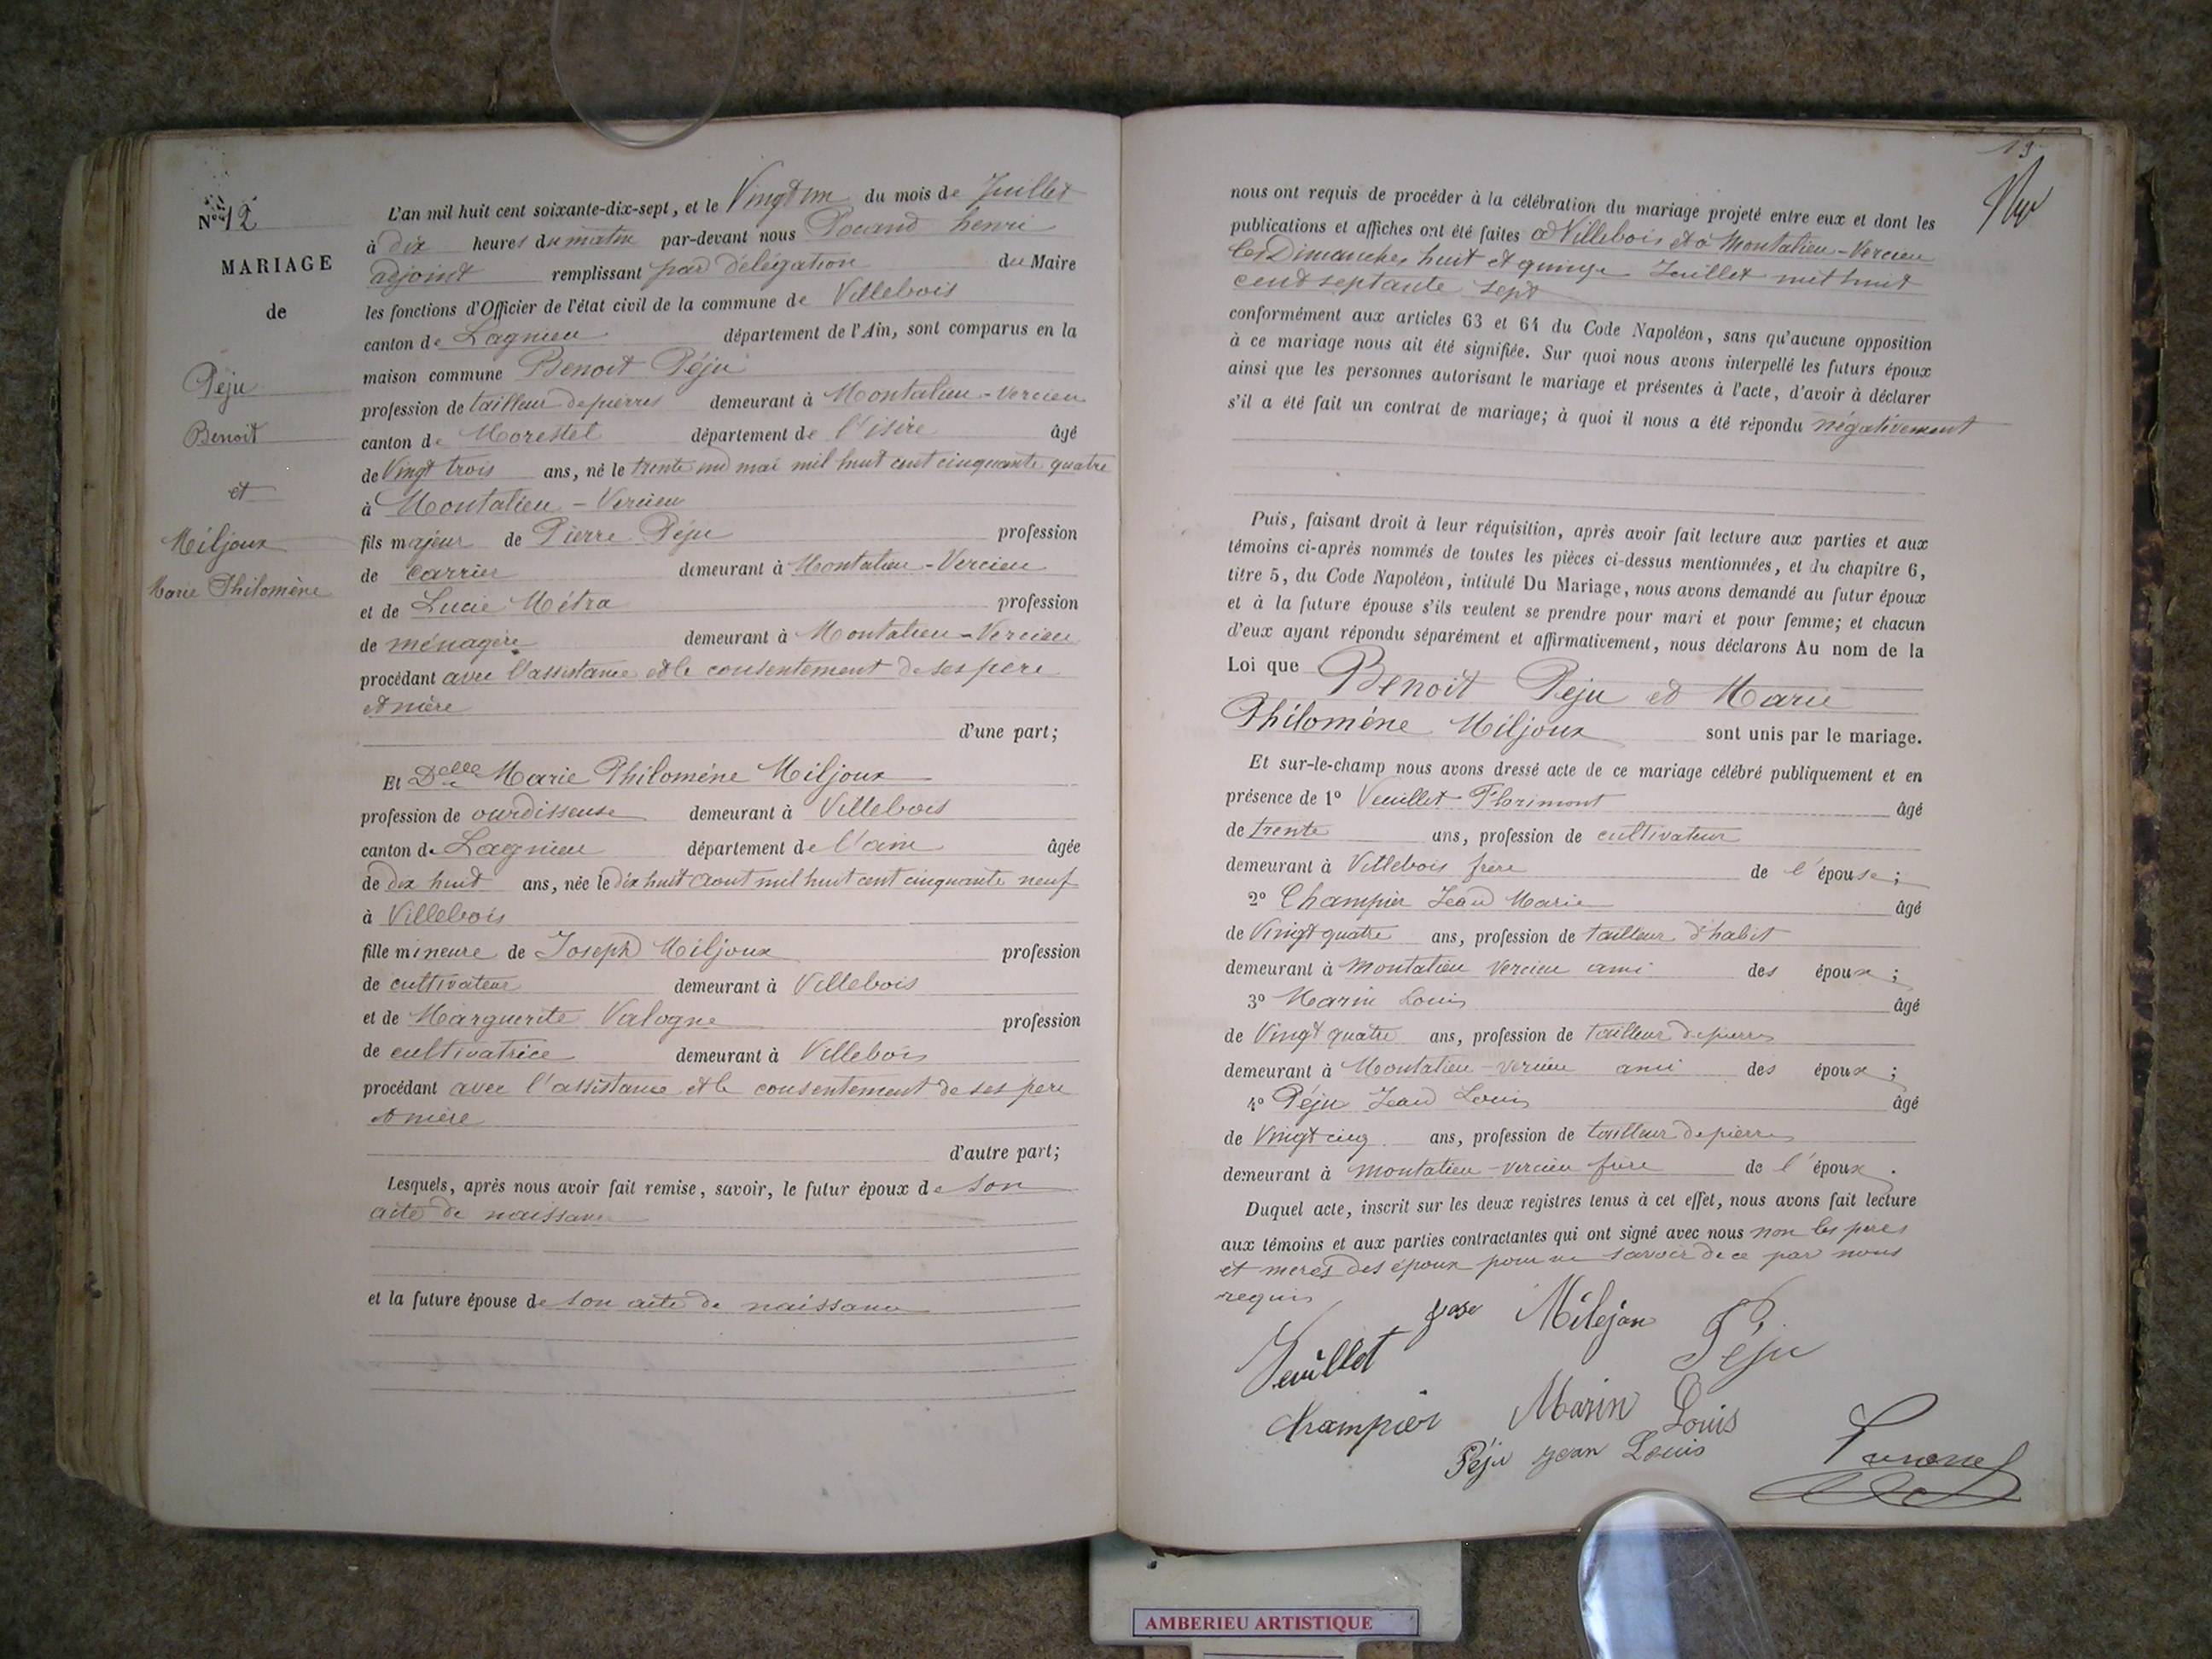 N° 12
MARIAGE
de
Péju
Benoit
et
Miljoux
Marie Philomène
L'an mil huit cent soixante-dix-sept, et le Vingt un du mois de Juillet
à dix heures du matin par-devant nous henri
adjoint remplissant par délégation du Maire
les fonctions d'Officier de l'état civil de la commune de Villebois
canton de Lagnieu département de l'Ain, sont comparus en la
maison commune Benoit Péju
profession de tailleur de pierres demeurant à Montalieu-Vercieu
canton de Morestel département de l'isère âgé
de Vingt trois ans, né le trente un mai mil huit cent cinquante quatre
à Montalieu-Vercieu
fils majeur de Pierre Péju profession
de carrier demeurant à Montalieu-Vercieu
et de Lucie Métra profession
de ménagère demeurant à Montalieu-Vercieu
procédant avec l'assistance et le consentement de ses père
et mère
d'une part;
Et Delle Marie Philomène Miljoux
profession de ourdisseuse demeurant à Villebois
canton de Lagnieu département de l'ain âgée
de dix huit ans, née le dix huit Aout mil huit cent cinquante neuf
à Villebois
fille mineure de Joseph Miljoux profession
de cultivateur demeurant à Villebois
et de Marguerite Valogne profession
de cultivatrice demeurant à Villebois
procédant avec l'assistance et le consentement de ses père
et mère
d'autre part;
Lesquels, après nous avoir fait remise, savoir, le futur époux de son
acte de naissance
et la future épouse de son acte de naissance
13
nous ont requis de procéder à la célébration du mariage projeté entre eux et dont les
publications et affiches ont été faites à Villebois et à Montalieu-Vercieu
les Dimanches huit et quinze Juillet mil huit
cent septante sept
conformément aux articles 63 et 64 du Code Napoléon, sans qu'aucune opposition
à ce mariage nous ait été signifiée. Sur quoi nous avons interpellé les futurs époux
ainsi que les personnes autorisant le mariage et présentes à l'acte, d'avoir à déclarer
s'il a été fait un contrat de mariage; à quoi il nous a été répondu négativement
Puis, faisant droit à leur réquisition, après avoir fait lecture aux parties et aux
témoins ci-après nommés de toutes les pièces ci-dessus mentionnées, et du chapitre 6,
titre 5, du Code Napoléon, intitulé Du Mariage, nous avons demandé au futur époux
et à la future épouse s'ils veulent se prendre pour mari et pour femme; et chacun
d'eux ayant répondu séparément et affirmativement, nous déclarons Au nom de la
Loi que Benoit Péju et Marie
Philomène Miljoux sont unis par le mariage.
Et sur-le-champ nous avons dressé acte de ce mariage célébré publiquement et en
présence de 1° Veuillet Florimont âgé
de trente ans, profession de cultivateur
demeurant à Villebois frère de l'épouse;
2° Champier Jean Marie âgé
de Vingt quatre ans, profession de tailleur d'habit
demeurant à Montalieu Vercieu ami des époux;
3° Marin Louis âgé
de Vingt quatre ans, profession de tailleur de pierres
demeurant à Montalieu-Vercieu ami des époux;
4° Péju Jean Louis âgé
de Vingt cinq ans, profession de tailleur de pierres
demeurant à Montalieu-Vercieu frère de l'époux.
Duquel acte, inscrit sur les deux registres tenus à cet effet, nous avons fait lecture
aux témoins et aux parties contractantes qui ont signé avec nous non les pères
et mères des époux pour ne savoir de ce par nous
requis
Miléjan
Péju
Veuillet
Champier
Marin Louis
Péju jean Louis
AMBERIEU ARTISTIQUE